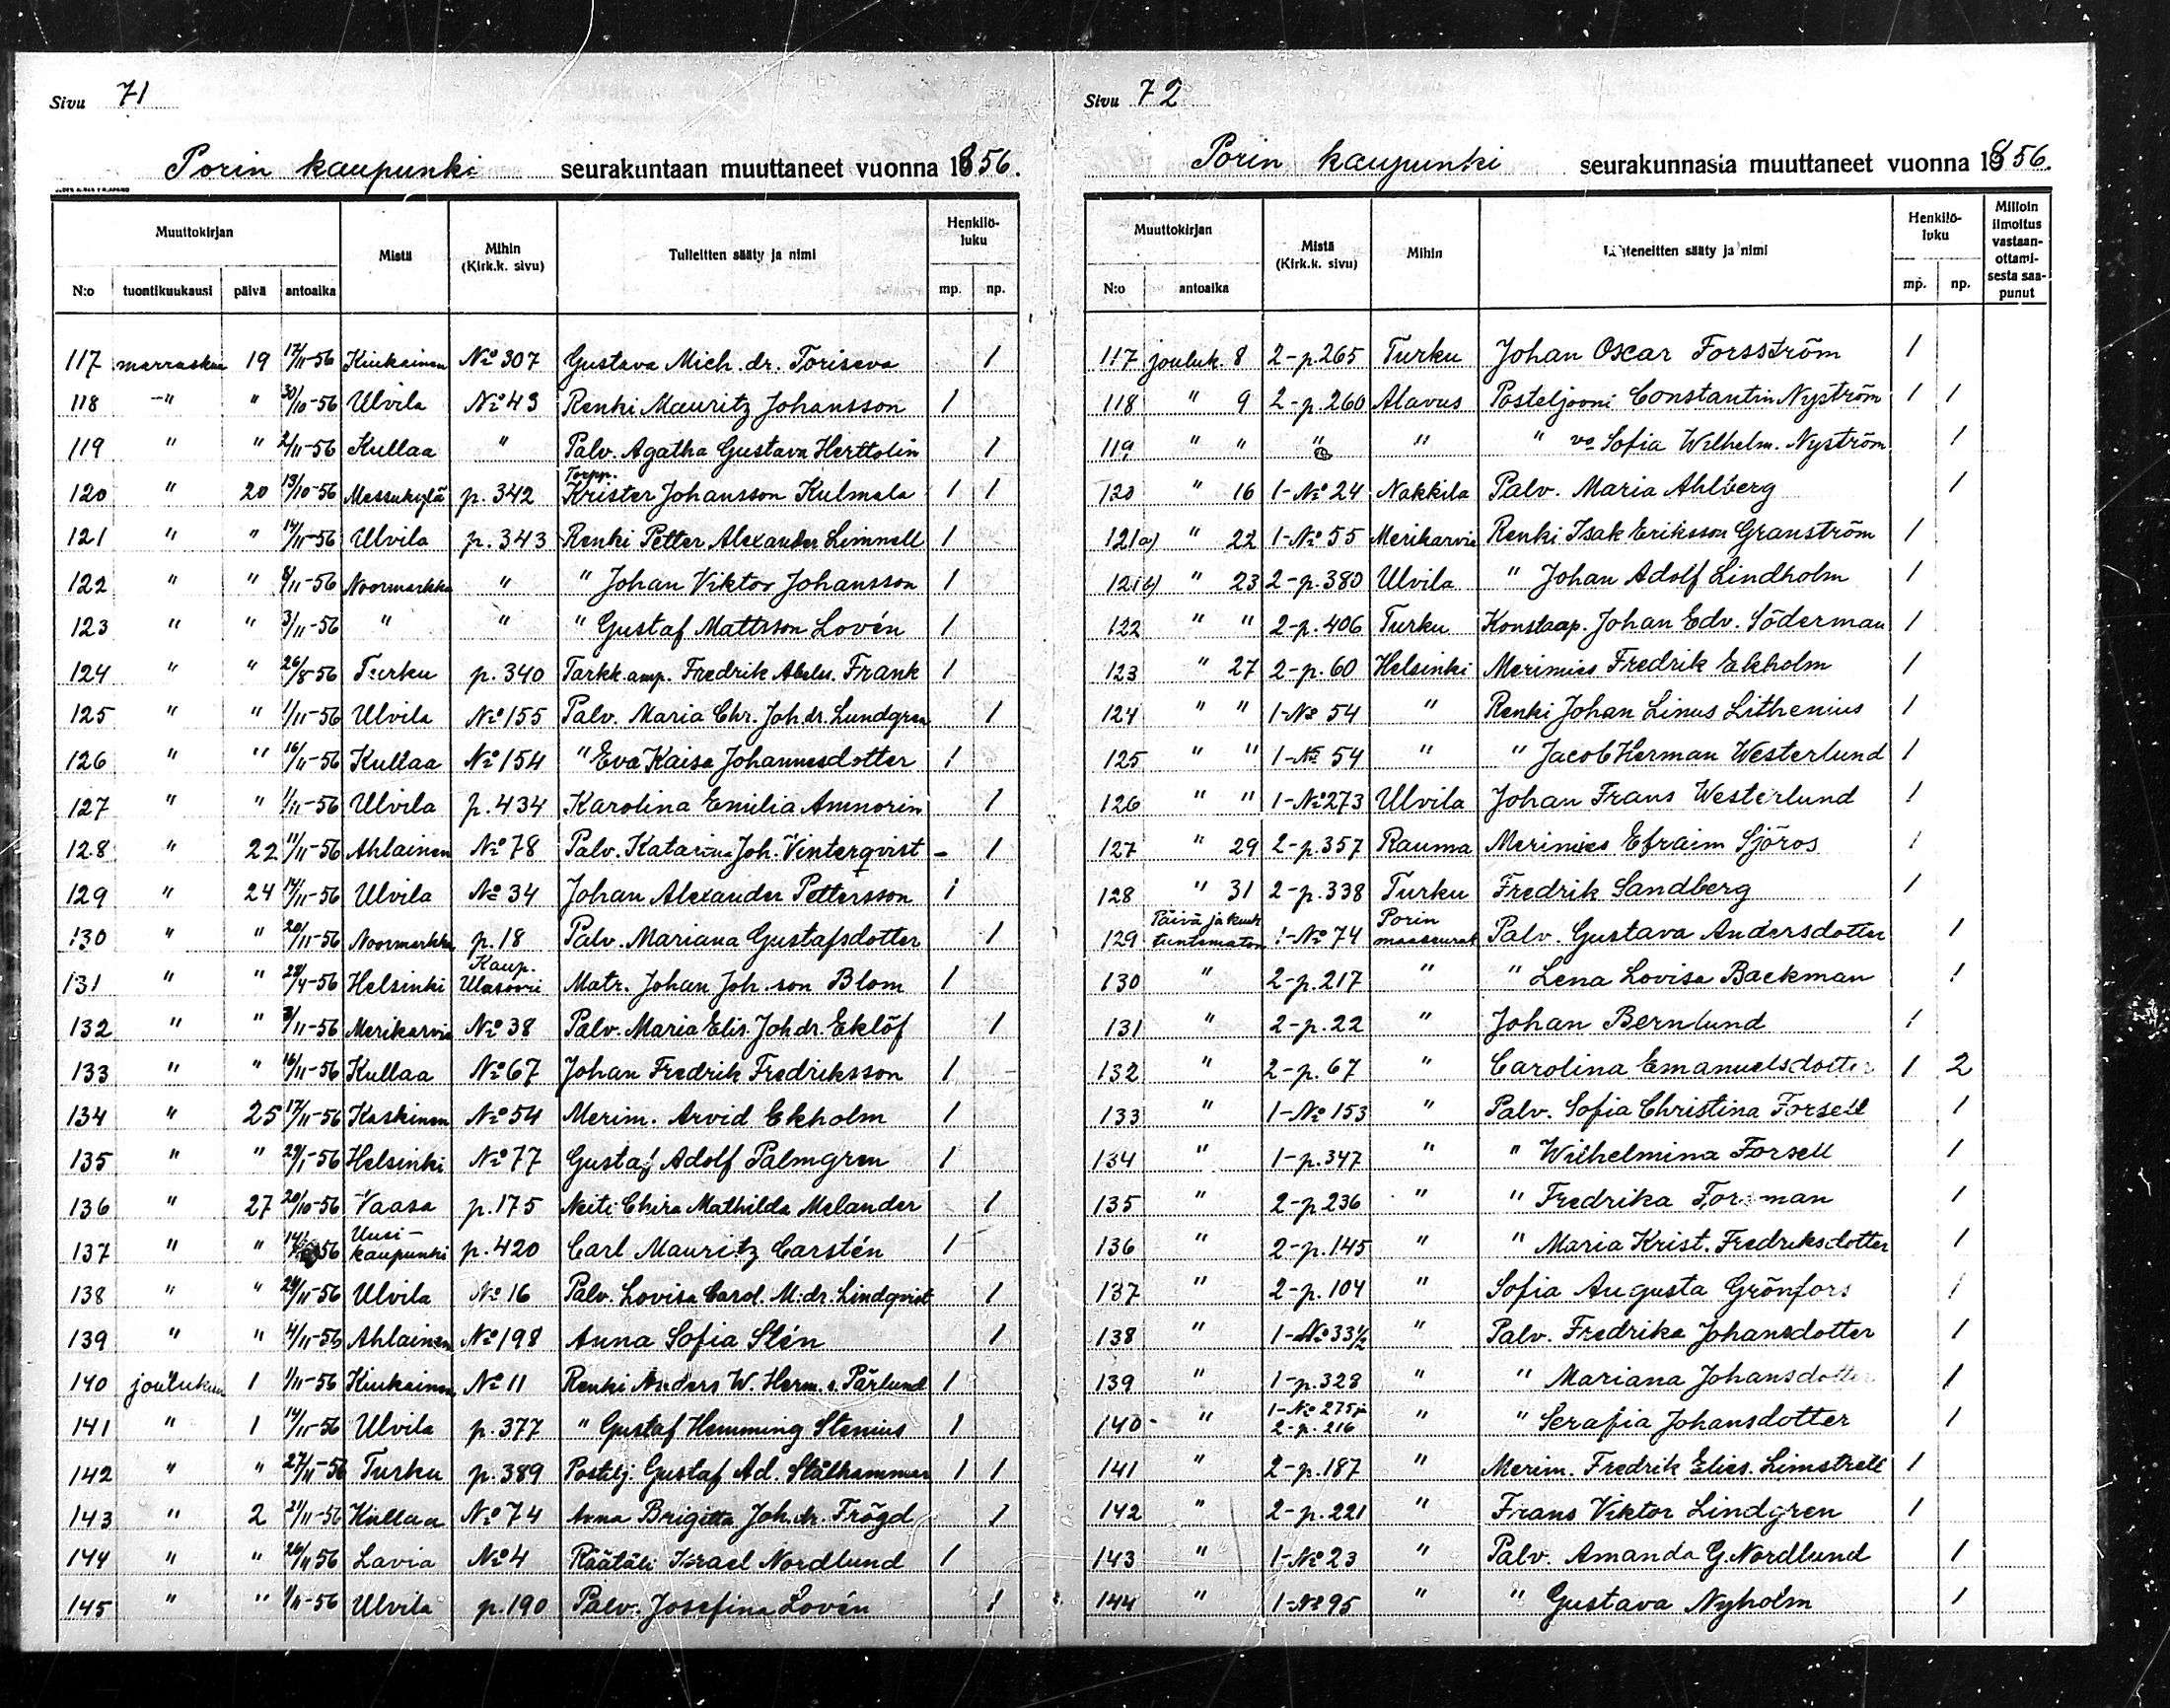 Sivu 71
Porin kaupunki seurakuntaan muuttaneet vuonna 1856.
Muuttokirjan Mistä Mihin (Kirk.k. sivu) Tulleitten sääty ja nimi Henkilöluku
N:o tuontikuukausi päivä antoaika mp. np.
117 marraskuu 19 17/11-56 Kiukainen No 307 Gustava Mich. dr. Toriseva 1
118 -"- " 30/10-56 Ulvila No 43 Renki Mauritz Johansson 1
119 " " 2/11-56 Kullaa " Palv. Agatha Gustava Herttolin 1
120 " 20 13/10-56 Messukylä p. 342 Torpp. Krister Johansson Kulmala 1 1
121 " " 14/11-56 Ulvila p. 343 Renki Petter Alexander Limnell 1
122 " " 8/11-56 Noormarkku " " Johan Viktor Johansson 1
123 " " 3/11-56 " " " Gustaf Mattsson Lovén 1
124 " " 26/8-56 Turku p. 340 Tarkk.amp. Fredrik Abeles. Frank 1
125 " " 1/11-56 Ulvila No 155 Palv. Maria Chr. Joh.dr. Lundgren 1
126 " " 16/11-56 Kullaa No 154 " Eva Kaisa Johannesdotter 1
127 " " 1/11-56 Ulvila p. 434 Karolina Emilia Amnorin 1
128 " 22 11/11-56 Ahlainen No 78 Palv. Katarina Joh. Vinterqvist - 1
129 " 24 14/11-56 Ulvila No 34 Johan Alexander Pettersson 1
130 " " 20/11-56 Noormarkku p. 18 Palv. Mariana Gustafsdotter 1
131 " " 28/4-56 Helsinki Kaup. Ulasoori Matr. Johan Joh.son Blom 1
132 " " 3/11-56 Merikarvia No 38 Palv. Maria Elis. Joh.dr. Eklöf 1
133 " " 16/11-56 Kullaa No 67 Johan Fredrik Fredriksson 1
134 " 25 17/11-56 Kaskinen No 54 Merim. Arvid Ekholm 1
135 " " 29/1-56 Helsinki No 77 Gustaf Adolf Palmgren 1
136 " 27 20/10-56 Vaasa p. 175 Neiti Chira Mathilda Melander 1
137 " " 56 Uusikaupunki p. 420 Carl Mauritz Carstén 1
138 " " 24/11-56 Ulvila No 16 Palv. Lovisa Carol. M:dr. Lindqvist 1
139 " " 4/11-56 Ahlainen No 198 Anna Sofia Stén 1
140 joulukuu 1 1/11-56 Kiukainen No 11 Renki Anders W. Herm. s. Pärlund 1
141 " 1 14/11-56 Ulvila p. 377 " Gustaf Hemming Stenius 1
142 " " 27/11-56 Turku p. 389 Postilj. Gustaf Ad. Stålhammar 1 1
143 " 2 21/11-56 Kullaa No 74 Anna Brigitta Joh.dr. Frögd 1
144 " " 26/11 56 Lavia No 4 Räätäli Israel Nordlund 1
145 " " 1/11-56 Ulvila p. 190 Palv. Josefina Lovén 1
Sivu 72
Porin kaupunki seurakunnasta muuttaneet vuonna 1856.
Muuttokirjan Mistä (Kirk.k. sivu) Mihin Lähteneitten sääty ja nimi Henkilöluku Milloin ilmoitus vastaanottamisesta saapunut
N:o antoaika mp. np.
117 jouluk. 8 2-p.265 Turku Johan Oscar Forsström 1
118 " 9 2-p.260 Alavus Posteljooni Constantin Nyström 1 1
119 " " " " " vo Sofia Wilhelm. Nyström 1
120 " 16 1-No 24 Nakkila Palv. Maria Ahlberg 1
121a) " 22 1-No 55 Merikarvia Renki Isak Eriksson Granström 1
121b) " 23 2-p.380 Ulvila " Johan Adolf Lindholm 1
122 " " 2-p.406 Turku Konstaap. Johan Edv. Söderman 1
123 " 27 2-p.60 Helsinki Merimies Fredrik Ekholm 1
124 " " 1-No 54 " Renki Johan Linus Lithenius 1
125 " " 1-No 54 " " Jacob Herman Westerlund 1
126 " " 1-No 273 Ulvila Johan Frans Westerlund 1
127 " 29 2-p.357 Rauma Merimies Efraim Sjöros 1
128 " 31 2-p.338 Turku Fredrik Sandberg 1
129 Päivä ja kuuk tuntematon 1-No 74 Porin maaseurak Palv. Gustava Andersdotter 1
130 " 2-p.217 " " Lena Lovisa Backman 1
131 " 2-p.22 " Johan Bernlund 1
132 " 2-p.67 " Carolina Emanuelsdotter 1 2
133 " 1-No 153 " Palv. Sofia Christina Forsell 1
134 " 1-p.347 " " Wilhelmina Forsell 1
135 " 2-p.236 " " Fredrika Forsman 1
136 " 2-p.145 " " Maria Krist. Fredriksdotter 1
137 " 2-p.104 " Sofia Augusta Grönfors 1
138 " 1-No 33½ " Palv. Fredrika Johansdotter 1
139 " 1-p.328 " " Mariana Johansdotter 1
140 " 1-No 275 ja 2-p.216 " " Serafia Johansdotter 1
141 " 2-p.187 " Merim. Fredrik Elies. Limstrell 1
142 " 2-p.221 " Frans Viktor Lindgren 1
143 " 1-No 23 " Palv. Amanda G. Nordlund 1
144 " 1-No 95 " " Gustava Nyholm 1